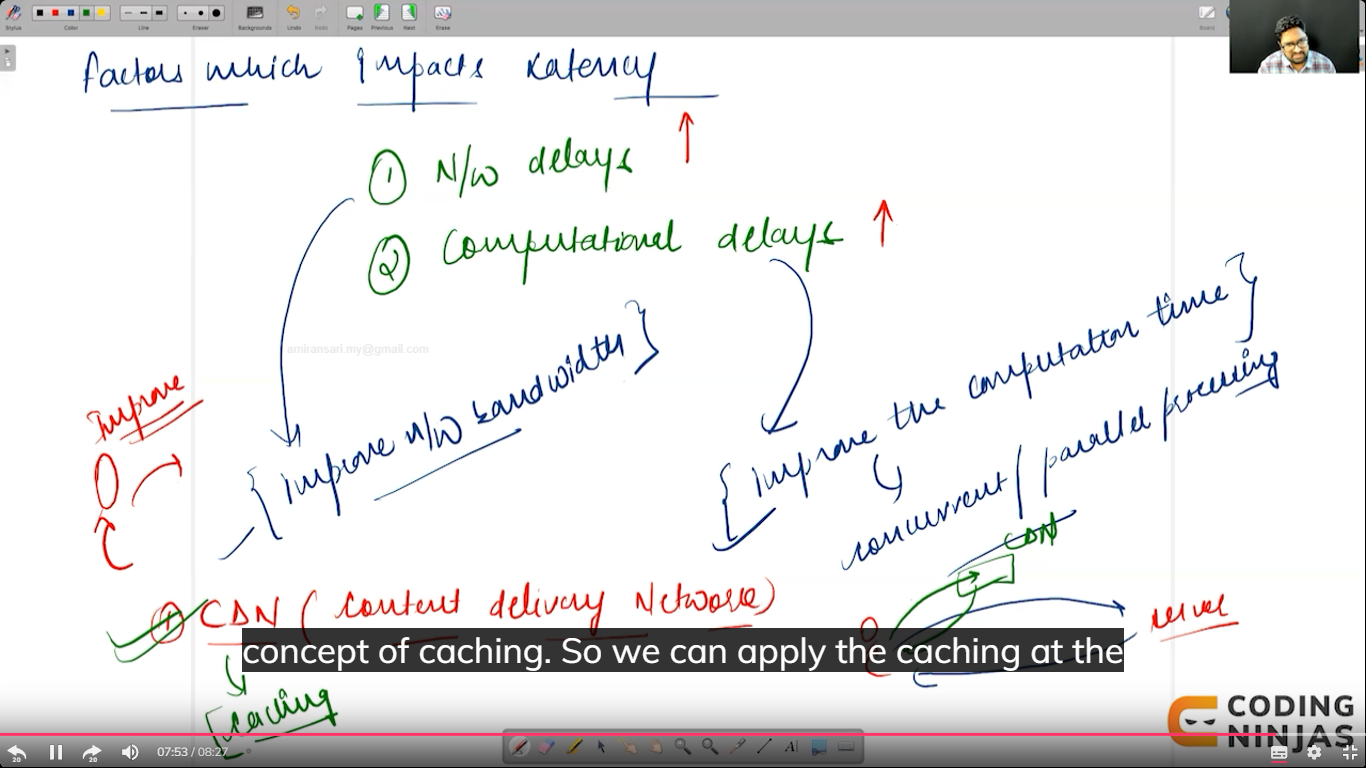 Stylus
Color
Line
Eraser
Backgrounds
Undo
Redo
Pages
Previous
Next
Erase
Board
factors which impacts Latency
① N/W delays
② Computational delays
amiransari.my@gmail.com
{improve n/w bandwidth}
{improve the computation time}
concurrent / parallel processing
Improve
CDN
① CDN (content delivery Network)
server
[caching
concept of caching. So we can apply the caching at the
CODING
NINJAS
07:53 / 08:27
20
20